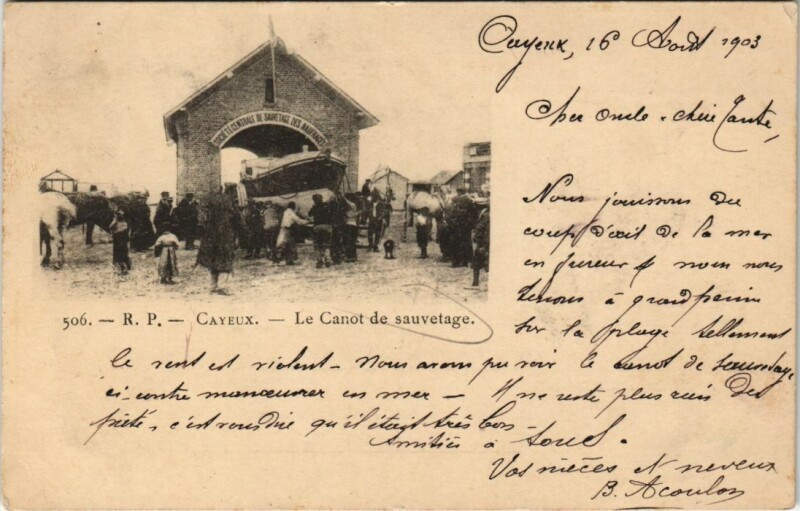 Cayeux, 16 Août 1903
Cher oncle - chère Tante,
SOCIÉTÉ CENTRALE DE SAUVETAGE DES NAUFRAGÉS
Nous jouissons du
coup d'œil de la mer
en fureur & nous nous
tenons à grand peine
sur la plage tellement
506. — R. P. — CAYEUX. — Le Canot de sauvetage.
le vent est violent - Nous avons pu voir le canot de sauvetage
ci-contre manœuvrer en mer - Il ne reste plus rien du
pâté, c'est vous dire qu'il était très bon -
Amitiés à tous.
Vos nièces et neveux
B. Acoulon